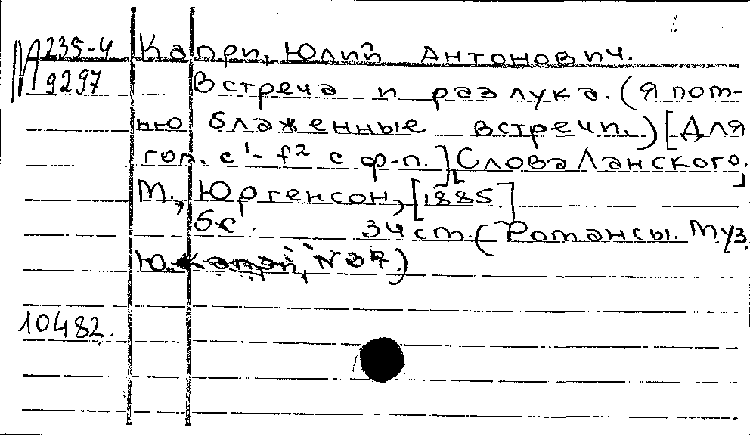 М 235-4 Капри, Юлий Антонович.
9297 Встреча и разлука. (Я пом-
ню блаженные встречи.) [Для
гол. c¹-f² с ф-п.] Слова Ланского.
М., Юргенсон, [1885.]
5 с. 34 ст. (Романсы. Муз.
Ю. Капри, № 37.)
10482.